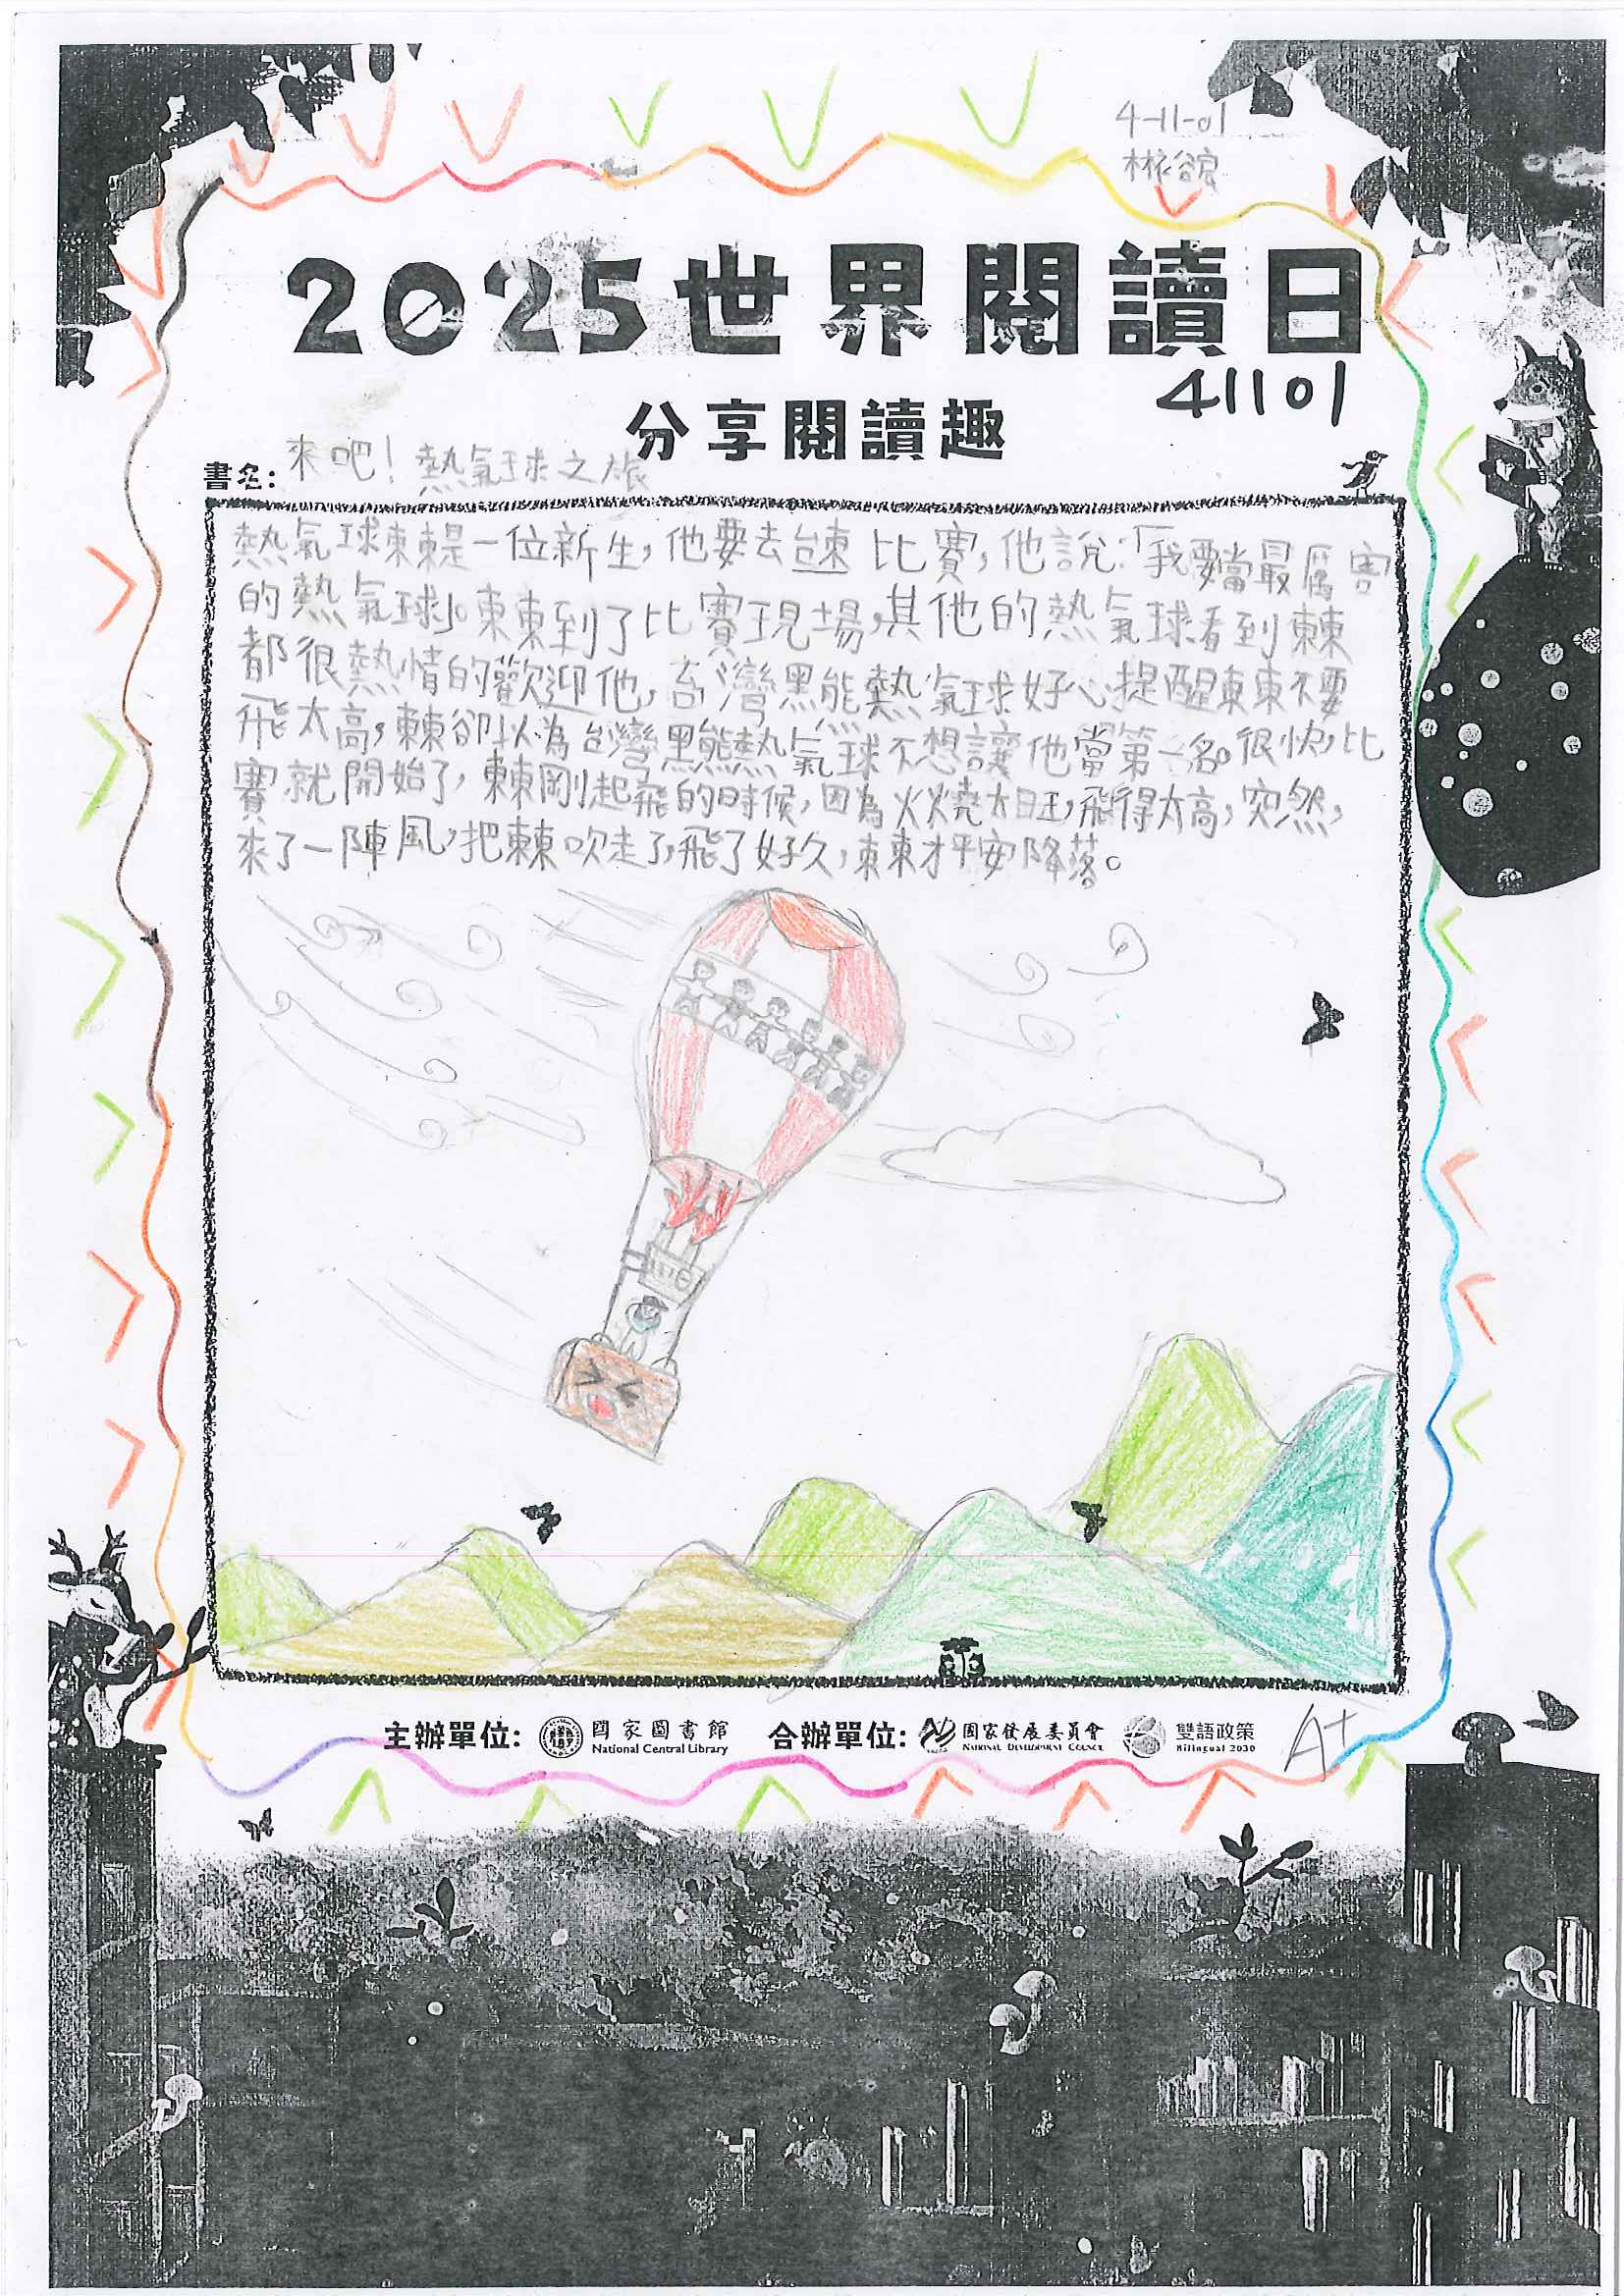 4-11-01
林容宸
2025世界閱讀日
41101
分享閱讀趣
書名: 來吧!熱氣球之旅
熱氣球東東是一位新生,他要去台東比賽,他說:「我要當最厲害
的熱氣球」。東東到了比賽現場,其他的熱氣球看到東東
都很熱情的歡迎他,台灣黑熊熱氣球好心提醒東東不要
飛太高,東東卻以為台灣黑熊熱氣球不想讓他當第一名。很快,比
賽就開始了,東東剛起飛的時候,因為火燃燒太旺,飛得太高,突然,
來了一陣風,把東東吹走了,飛了好久,東東才平安降落。
主辦單位: 國家圖書館 National Central Library 合辦單位: 國家發展委員會 NATIONAL DEVELOPMENT COUNCIL 雙語政策 Bilingual 2030
A+